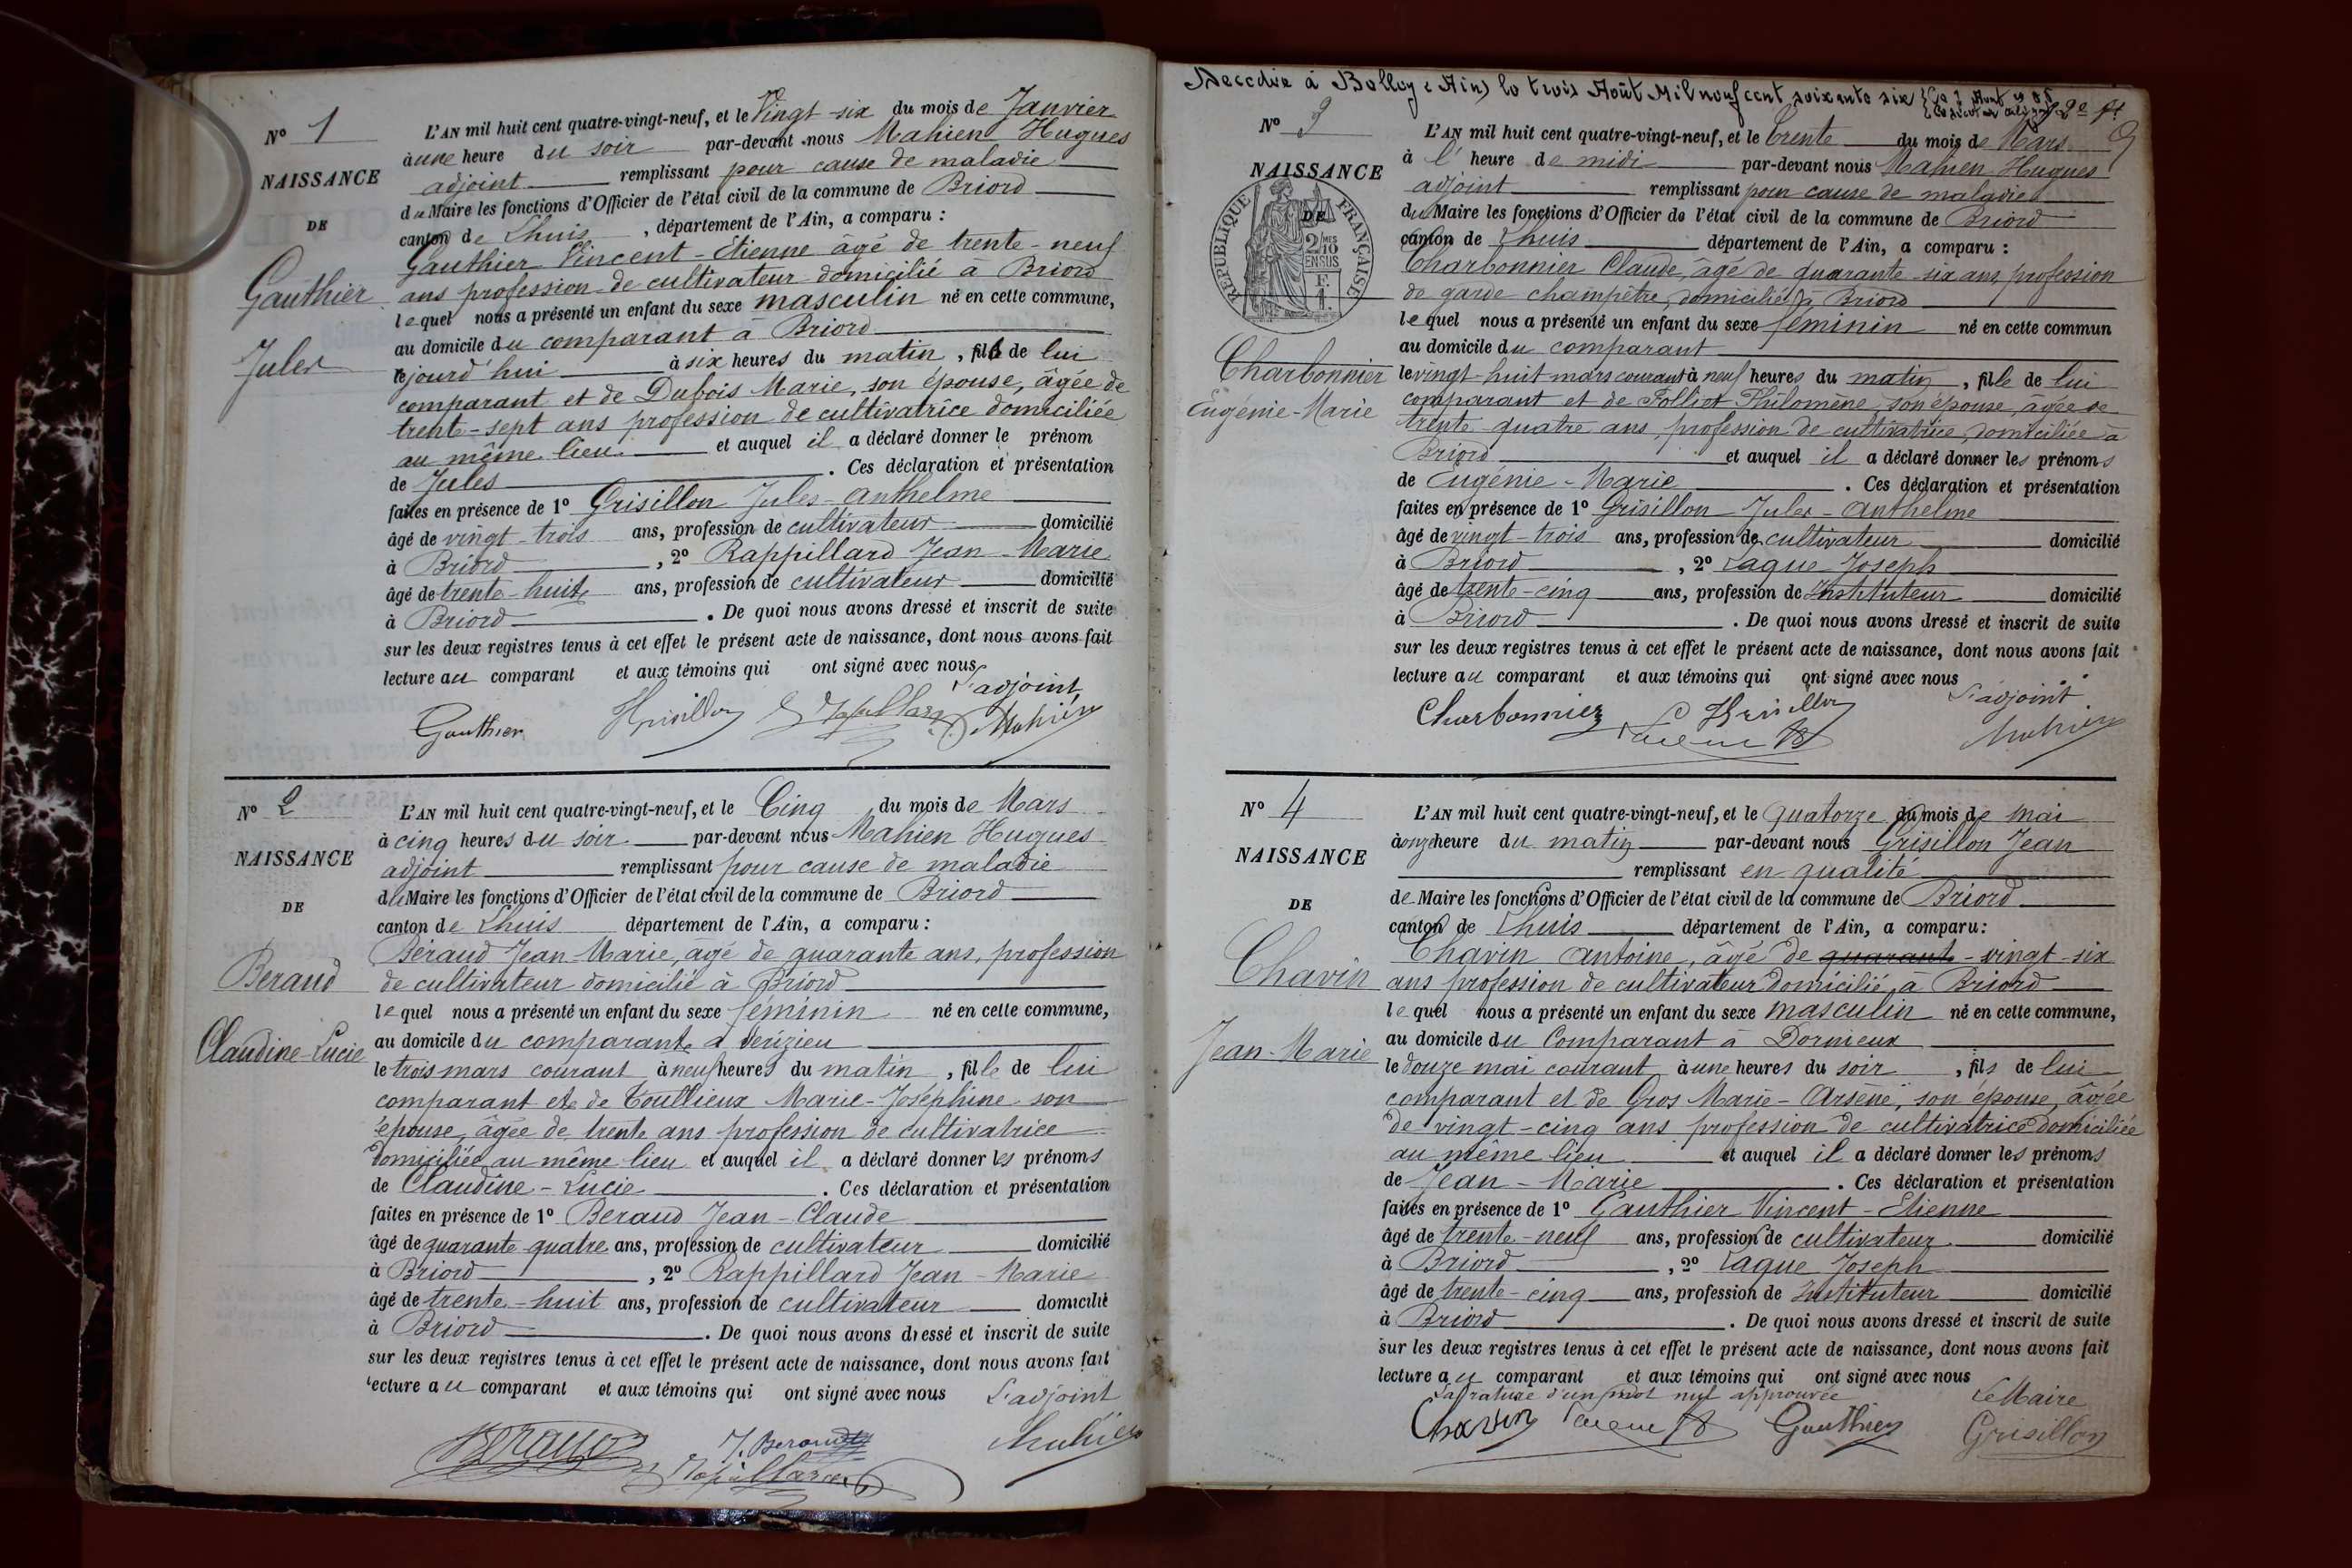 N° 1
NAISSANCE
DE
Gauthier
Jules
L'AN mil huit cent quatre-vingt-neuf, et le Vingt-six du mois de Janvier
à une heure du soir par-devant nous Mahien Hugues
adjoint remplissant pour cause de maladie
du Maire les fonctions d'Officier de l'état civil de la commune de Briord
canton de Lhuis, département de l'Ain, a comparu :
Gauthier Vincent-Etienne âgé de trente-neuf
ans profession de cultivateur domicilié à Briord
lequel nous a présenté un enfant du sexe masculin né en cette commune,
au domicile du comparant à Briord
cejourd'hui à six heures du matin, fils de lui
comparant et de Dubois Marie, son épouse, âgée de
trente-sept ans profession de cultivatrice domiciliée
au même lieu et auquel il a déclaré donner le prénom
de Jules. Ces déclaration et présentation
faites en présence de 1° Grisillon Jules-Anthelme
âgé de vingt-trois ans, profession de cultivateur domicilié
à Briord, 2° Rappillard Jean-Marie
âgé de trente-huit ans, profession de cultivateur domicilié
à Briord. De quoi nous avons dressé et inscrit de suite
sur les deux registres tenus à cet effet le présent acte de naissance, dont nous avons fait
lecture au comparant et aux témoins qui ont signé avec nous
L'adjoint
Gauthier Grisillon Rapillard Mahien
N° 2
NAISSANCE
DE
Beraud
Claudine-Lucie
L'AN mil huit cent quatre-vingt-neuf, et le Cinq du mois de Mars
à cinq heures du soir par-devant nous Mahien Hugues
adjoint remplissant pour cause de maladie
du Maire les fonctions d'Officier de l'état civil de la commune de Briord
canton de Lhuis département de l'Ain, a comparu :
Béraud Jean-Marie, âgé de quarante ans, profession
de cultivateur domicilié à Briord
lequel nous a présenté un enfant du sexe féminin né en cette commune,
au domicile du comparant à Vérizieu
le trois mars courant à neuf heures du matin, fille de lui
comparant et de Toullieux Marie-Joséphine son
épouse, âgée de trente ans profession de cultivatrice
domiciliée au même lieu et auquel il a déclaré donner les prénoms
de Claudine-Lucie. Ces déclaration et présentation
faites en présence de 1° Beraud Jean-Claude
âgé de quarante-quatre ans, profession de cultivateur domicilié
à Briord, 2° Rappillard Jean-Marie
âgé de trente-huit ans, profession de cultivateur domicilié
à Briord. De quoi nous avons dressé et inscrit de suite
sur les deux registres tenus à cet effet le présent acte de naissance, dont nous avons fait
lecture au comparant et aux témoins qui ont signé avec nous L'adjoint
Beraud J. Beraud Mahien
Rapillard
Deccdée à Belley (Ain) le trois Août Mil neuf cent soixante six
N° 3
NAISSANCE
DE
RÉPUBLIQUE FRANÇAISE
2/10
EN SUS
Charbonnier
Eugénie-Marie
L'AN mil huit cent quatre-vingt-neuf, et le Trente du mois de Mars
à l'heure de midi par-devant nous Mahien Hugues
adjoint remplissant pour cause de maladie
du Maire les fonctions d'Officier de l'état civil de la commune de Briord
canton de Lhuis département de l'Ain, a comparu :
Charbonnier Claude, âgé de quarante-six ans, profession
de garde champêtre, domicilié à Briord
lequel nous a présenté un enfant du sexe féminin né en cette commun
au domicile du comparant
le vingt-huit mars courant à neuf heures du matin, fille de lui
comparant et de Polliet Philomène, son épouse, âgée de
trente-quatre ans, profession de cultivatrice, domiciliée à
Briord et auquel il a déclaré donner les prénoms
de Eugénie-Marie. Ces déclaration et présentation
faites en présence de 1° Grisillon Jules-Anthelme
âgé de vingt-trois ans, profession de cultivateur domicilié
à Briord, 2° Laque Joseph
âgé de trente-cinq ans, profession de Instituteur domicilié
à Briord. De quoi nous avons dressé et inscrit de suite
sur les deux registres tenus à cet effet le présent acte de naissance, dont nous avons fait
lecture au comparant et aux témoins qui ont signé avec nous
L'adjoint
Charbonnier Grisillon Mahien
N° 4
NAISSANCE
DE
Chavin
Jean-Marie
L'AN mil huit cent quatre-vingt-neuf, et le quatorze du mois de mai
à onze heure du matin par-devant nous Grisillon Jean
remplissant en qualité
de Maire les fonctions d'Officier de l'état civil de la commune de Briord
canton de Lhuis département de l'Ain, a comparu :
Chavin Antoine, âgé de quarante-vingt-six
ans profession de cultivateur domicilié à Briord
lequel nous a présenté un enfant du sexe masculin né en cette commune,
au domicile du Comparant à Dornieux
le douze mai courant à une heures du soir, fils de lui
comparant et de Gros Marie-Arsène, son épouse, âgée
de vingt-cinq ans profession de cultivatrice domiciliée
au même lieu et auquel il a déclaré donner les prénoms
de Jean-Marie. Ces déclaration et présentation
faites en présence de 1° Gauthier Vincent-Etienne
âgé de trente-neuf ans, profession de cultivateur domicilié
à Briord, 2° Laque Joseph
âgé de trente-cinq ans, profession de Instituteur domicilié
à Briord. De quoi nous avons dressé et inscrit de suite
sur les deux registres tenus à cet effet le présent acte de naissance, dont nous avons fait
lecture au comparant et aux témoins qui ont signé avec nous
La rature d'un mot nul approuvée Le Maire
Chavin Gauthier Grisillon